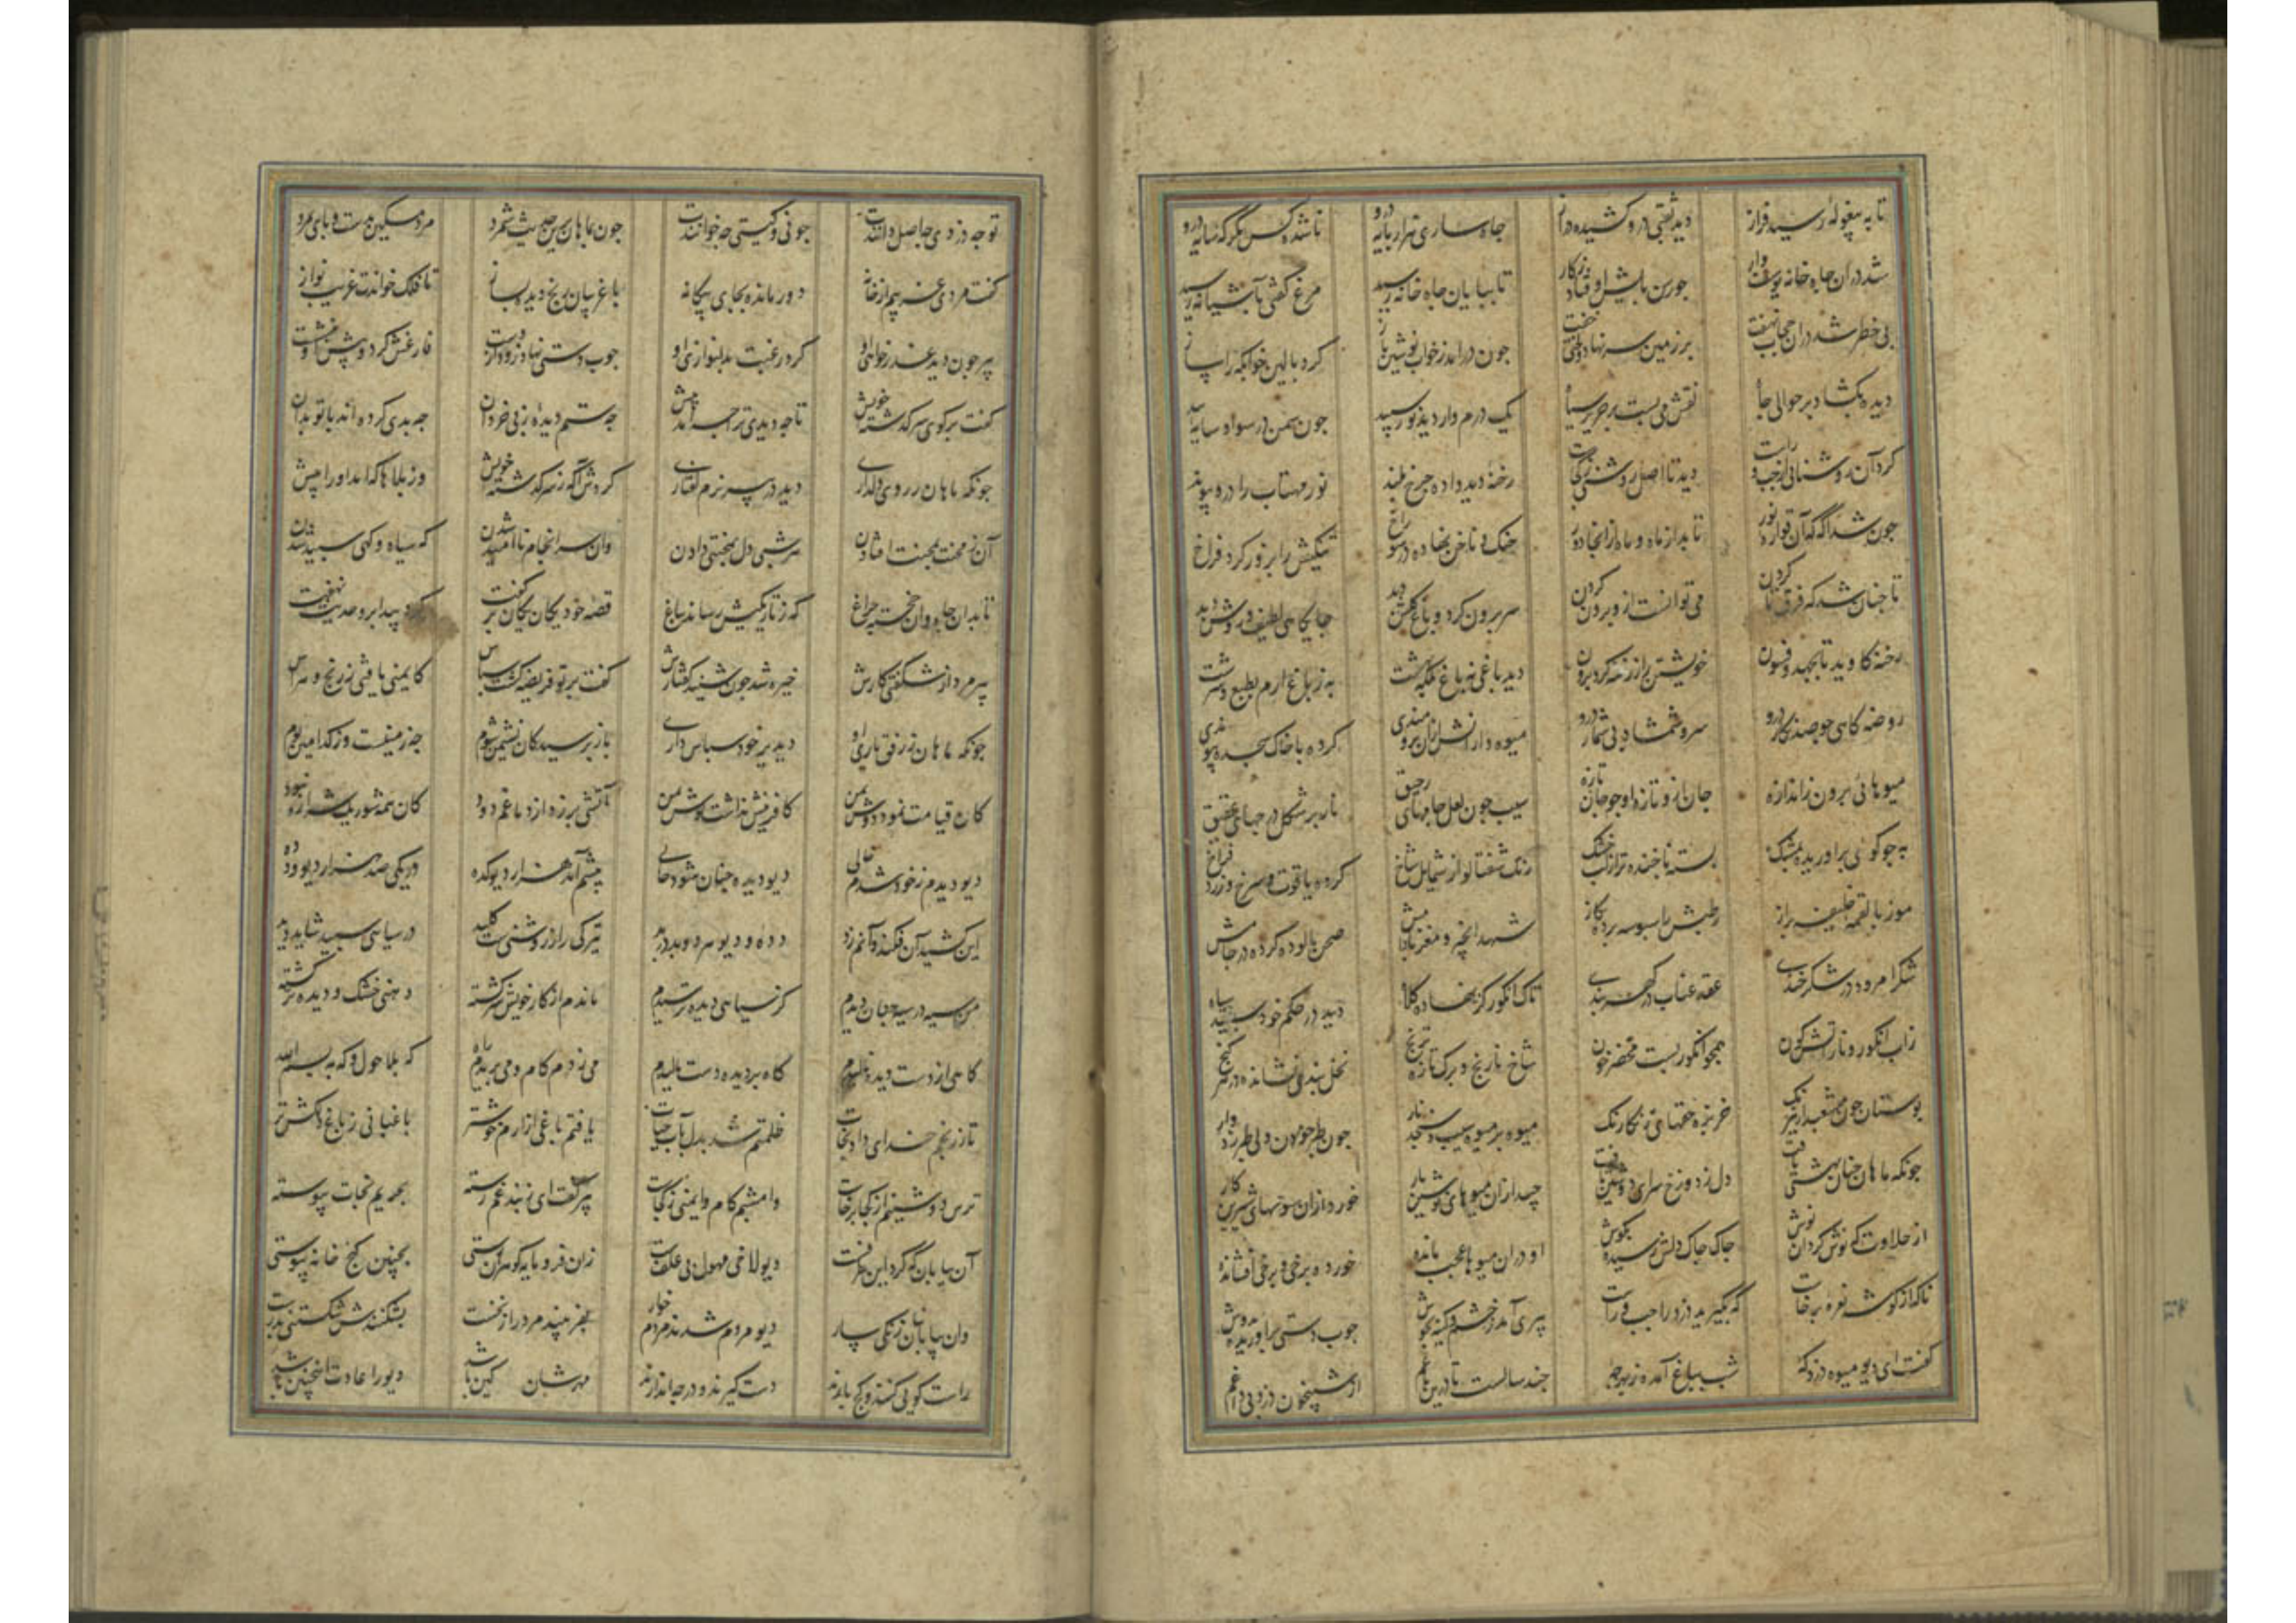 تا به پیغوله رسید فراز دید نقبی درو کشیده دراز چاه ساری هزار پایه درو ناشده کس مگر که سایه درو
شد در ان چاه خانه یوسف وار چون رسن پایش اوفتاد ز کار تا بپایان چاه خانه رسید مرغ کفتی باشیانه رسید
بی خطر شد در ان حجاب نهفت بر زمین سر نهاد و لختی خفت چون درامد ز خواب نوشین باز کرد بالین خوابکه را ساز
دیده بکشاد بر حوالی جاه نقش می بست بر حریر سیاه یک درم وار دید نور سپید چون سمن در سواد سایه بید
کرد آن روشنائی از چپ و راست دید تا اصل روشنی ز کجاست رخنه دید داده چرخ بلند نور مهتاب را درو پیوند
چون شد اکه که آن فواره نور تابد از ماه و ماه از انجا دور جنک و ناخن نهاده در سوراخ تنکیش را بزور کرد فراخ
تا چنان شد که فرق تا کردن می توانست ازو برون کردن سر برون کرد و باغ کلشن دید جایکاهی لطیف و روشن دید
رخنه کاوید تا بجهد و فسون خویشتن را ز رخنه کرد برون دید باغی نه باغ بلکه بهشت به ز باغ ارم بطبع و سرشت
روضه کاهی چو صد نکار درو سرو و شمشاد بی شمار درو میوه دارانش از برومندی کرده با خاک سجده پیوندی
میوهائی برون ز اندازه جان ازو تازه او چو جان تازه سیب چون لعل جامهای رحیق نار بر شکل درجهای عقیق
به چو کوئی براوریده بمشک پسته با خنده تر از لب خشک رنک شفتالو از شمایل شاخ کرده یاقوت سرخ و زرد فراخ
موز با لقمه خلیفه براز رطبش را سبوسه برده بکاز شهد انجیر و مغز بادامش صحن پالوده کرده در جامش
شکر امرود در شکر خندی عقد عناب در کهر بندی تاک انکور کژ نهاده کلاه دید در حکم خود سپید و سیاه
ز اب انکور و نار آتش کون همچو انکور بسته محضر خون شاخ نارنج و برک تازه ترنج نخل بندی نشانده در هر کنج
بوستان چون مشعبد از نیرنک خربزه حقهای رنکارنک میوه بر میوه سیب و سنجد و نار چون طبرخون ولی طبرزد دار
چونکه ماهان چنان بهشتی یافت دل ز دوزخ سرای دوشین تافت چید از ان میوهای نوشین بار خورد از ان سوتهای شیرین کار
از حلاوت که نوش کرد ان نوش چاک چاک دلش رسیده بکوش او در ان میوها عجب مانده خورده برخی و برخی افشانده
ناکه از کوشه نعره برخاست که بکیرید دزد را چپ و راست پیری آمد ز خشم و کینه بجوش چوب دستی براوریده بدوش
کفت ای دیو میوه دزد که شب بباغ آمده ز بهر چه چند سالست تا درین باغم از شبیخون دزد بی داغم
تو چه دزدی چه اصل دانندت چونی و کیستی چه خوانندت چون بماهان برین حدیث شمرد مرد مسکین بدست و پای بمرد
کفت مردی غریبم از خانه دور مانده بجای بیکانه با غریبان رنج دیده بساز تا فلک خواندت غریب نواز
پیر چون دید عذرخواهی او کرد رغبت بدلنوازی او چوب دستی نهاد زود ز دست فارغش کرد و پیش او بنشست
کفت برکوی سرکذشته خویش تا چه دیدی ترا چه آمد پیش چه ستم دیده ز بی خردان چه بدی کرده اند با تو بدان
چونکه ماهان ز روی دلداری دید در پیر نرم کفتاری کردش آکه ز سرکذشته خویش وز بلاها که امد او را پیش
آن ز محنت بمحنت افتادن هر شبی دل بمحنتی دادن وان سرانجام ناامید شدن که سیاه و کهی سپید شدن
تا بدان چاه و ان خجسته چراغ که ز تاریکیش رساند بباغ قصه خود یکان یکان برکفت کرد پیدا برو حدیث نهفت
پیر مرد از شکفتی کارش خیره شد چون شنید کفتارش کفت بر تو فریضه کشت سپاس کایمنی یافتی ز رنج و هراس
چونکه ماهان ز رفق و یاری او دید بر خود سپاس داری باز پرسید کان نشیمن شوم چه زمینست وز کدامین بوم
کان قیامت نمود دوش بمن کافرینش نداشت کوش بمن آتشی بر زد از دماغم دود کان همه شور یک شراره نبود
دیو دیدم ز خود شدم خالی دیو دیده چنان شود حالی پیشم آمد هزار دیوکده در یکی صد هزار دیو و دده
این کشید آن فکند و آنم زد دده و دیو هر دو بد در بد تیرکی را ز روشنیست کلید در سیاهی سپید شاید دید
من سیه در سیه چنان دیدم کز سیاهی دیده ترسیدم ماندم از کار خویش سرکشته دهنی خشک و دیده تر کشته
کاهی از دست دیده نالیدم کاه بر دیده دست مالیدم می زدم کام و می بریدم راه که بلاحول و که به بسم الله
تا ز رنجم خدای داد نجات ظلمتم شد بدل باب حیات یافتم باغی از ارم خوشتر باغبانی ز باغ دلکش تر
ترس دوشینم از کجا برخاست وامشبم کام و ایمنی ز کجاست پیر کفت ای ز بند غم رسته بحریم نجات پیوسته
آن بیابان که کرد این طرفست دیولاخی مهول و بی علفست
وان بیابانیان زنکی سار دیو مردم شدند مردم خوار بشکنندش شکستنی بدرست
راست کوئی کنند و کج بازند دست کیرند و در چه اندازند مهرشان کین باشد دیو را عادت اینچنین باشد